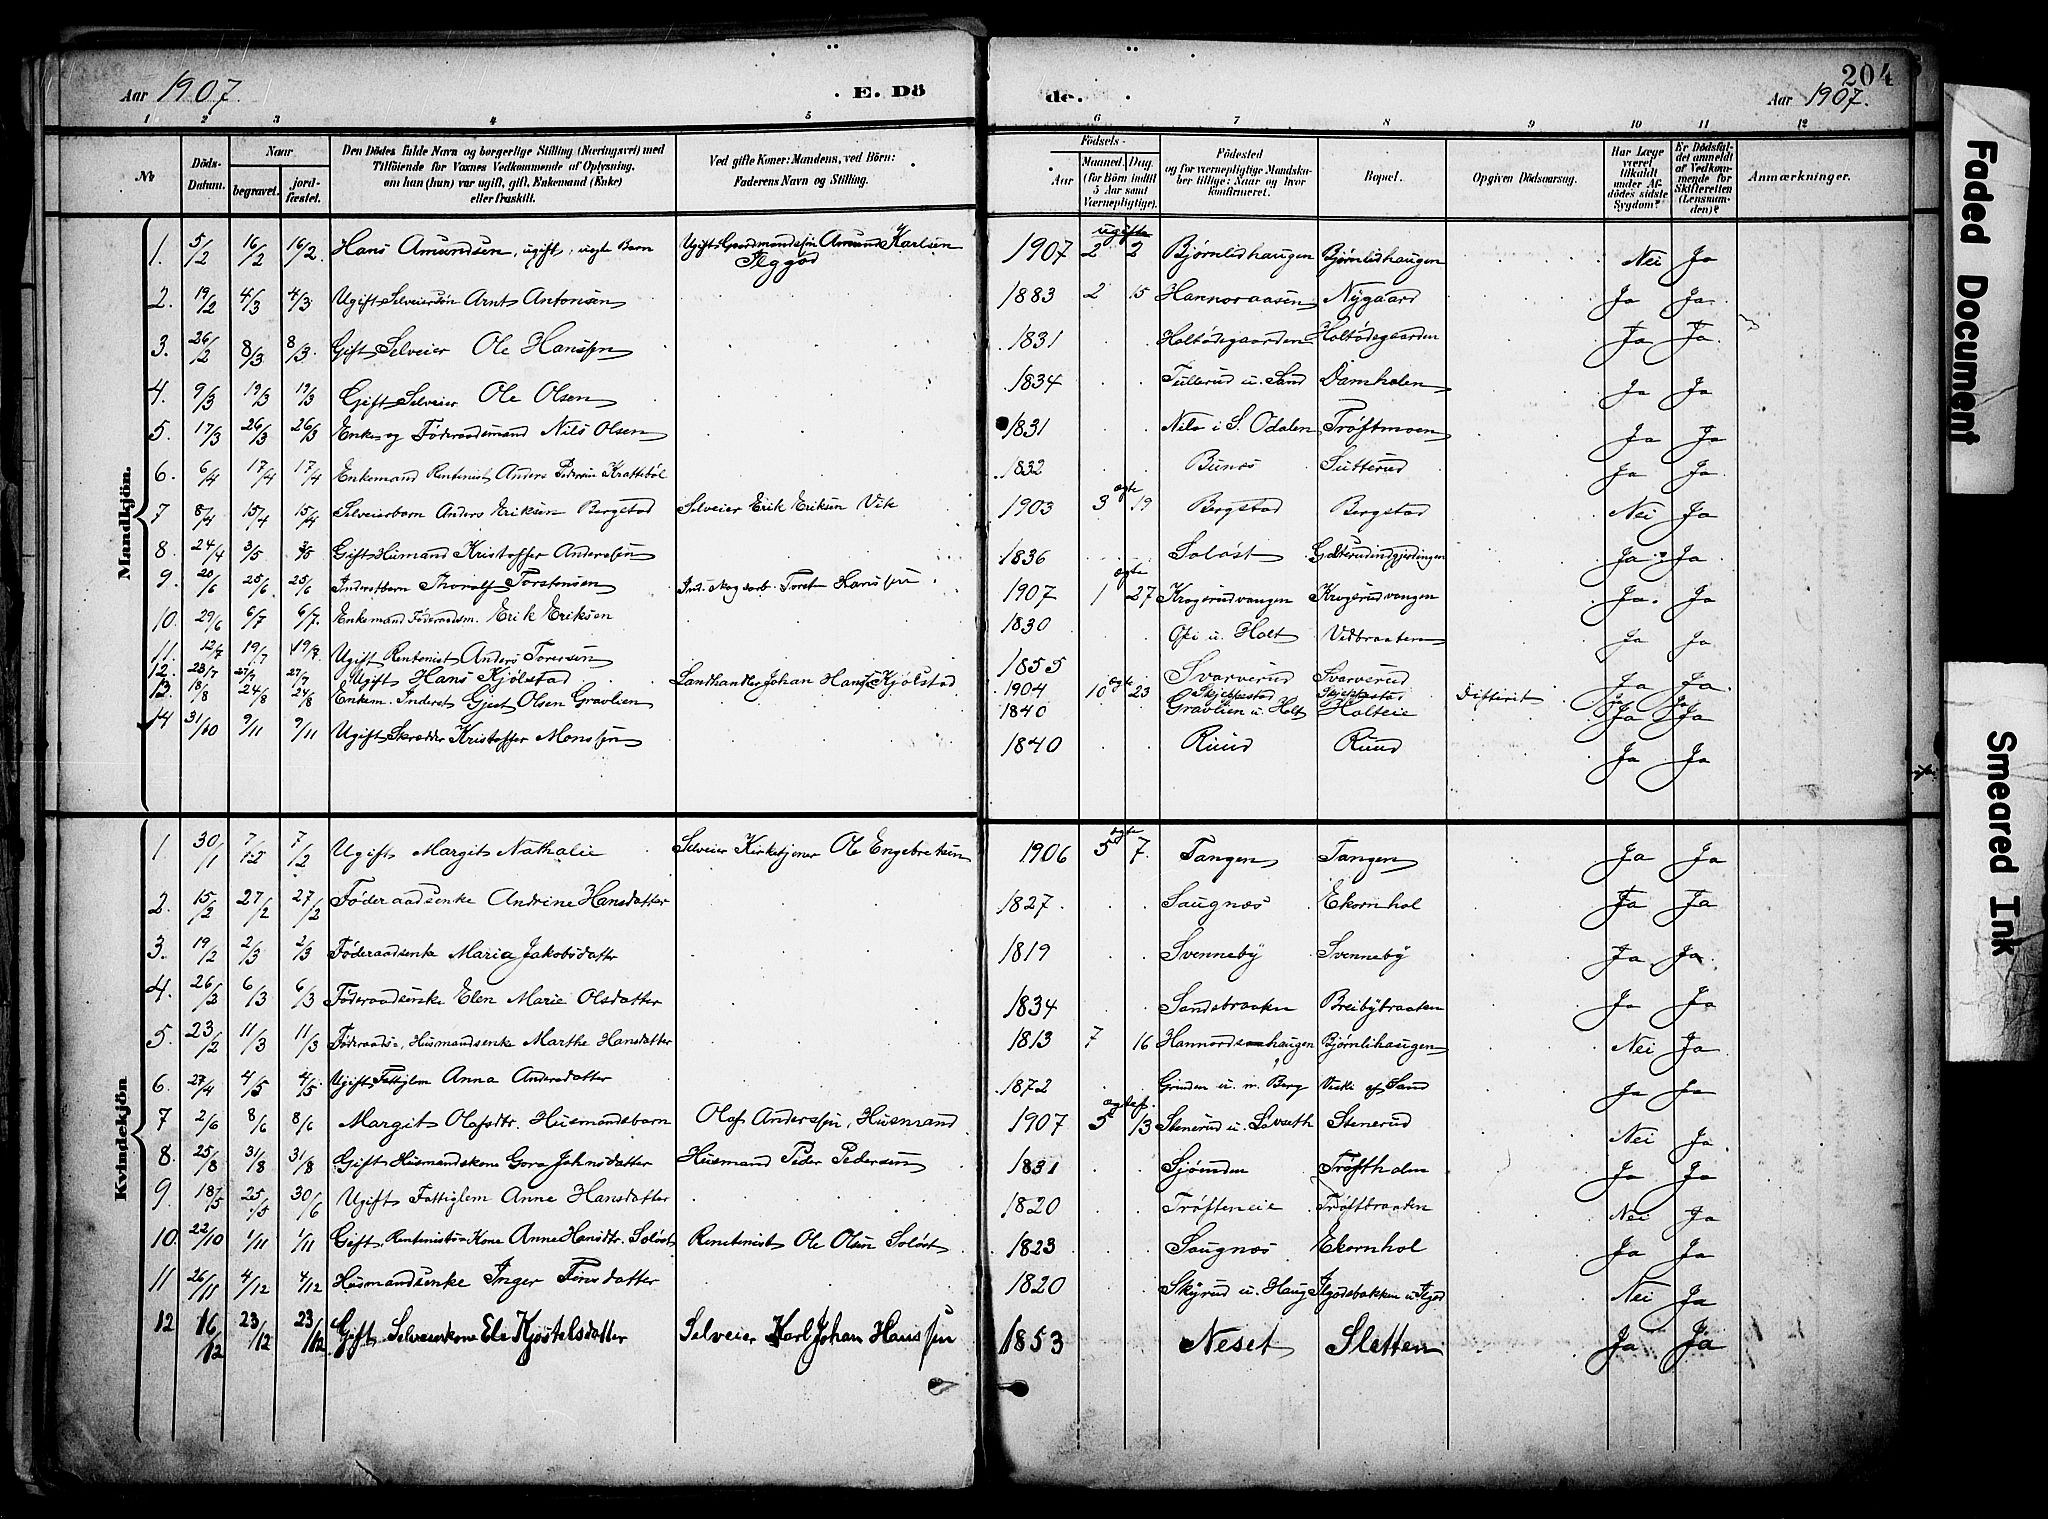 Aar 1907. E. Dö
de. 204
Aar 1907.
1 2 3 4 5 6 7 8 9 10 11 12
Nr
Döds-Datum.
Naar
begravet.
jordfæstet.
Den Dödes fulde Navn og borgerlige Stilling (Næringsvei) med
Tilföiende for Voxnes Vedkommende af Oplysning,
om han (hun) var ugift, gift, Enkemand (Enke)
eller fraskilt.
Ved gifte Koner: Mandens, ved Börn:
Faderens Navn og Stilling.
Födsels-
Aar
Maaned. Dag.
(for Börn indtil
5 Aar samt
Værnepligtige).
Födested
og for værnepligtige Mandska-
ber tillige: Naar og hvor
konfirmeret.
Bopæl.
Opgiven Dödsaarsag.
Har Læge
været
tilkaldt
under Af-
dödes sidste
Sygdom?
Er Dödsfal-
det anmeldt
af Vedkom-
mende for
Skifteretten
(Lensman-
den)?
Anmærkninger.
Mandkjön.
1. 5/2 16/2 16/2 Hans Amundsen, ugift, uægte Barn Ugift Gaardmandssøn Amund Karlsen 1907 ugifte 2 2 Bjørnlidhaugen Bjørnlidhaugen Nei Ja
2. 19/2 4/3 4/3 Ugift Selveiersøn Arnt Antonsen 1883 2 15 Hannoraasen Nygaard Ja Ja
3. 26/2 8/3 8/3. Gift Selveier Ole Hanssen 1831 Holtødegaarden Holtødegaarden Ja Ja
4. 9/3 19/3 19/3 Gift Selveier Ole Olsen 1834 Tullerud u. Sand Damholen Ja Ja
5. 17/3 26/3 26/3 Enke og Føderaadsmand Nils Olsen 1831 i S. Odalen Trøftmoen Ja Ja
6. 6/4 17/4 17/4 Enkemand Rentenist Anders Pedersen Krattebøl 1832 Bunes Sutterud Ja Ja
7 8/4 15/4 15/4 Selveierbarn Anders Eriksen Bergstad Selveier Erik Eriksen Vik 1903 ægte 3 19 Bergstad Bergstad Nei Ja
8. 24/4 3/5 3/5 Gift Husmand Kristoffer Anderssen 1836 Soløst Ja Ja
9. 20/6 25/6 25/6 Inderstbarn Thorolf Torstensen Ind. Skogsarb. Torsten Hanssen 1907 ægte 1 27 Krogsrudvangen Krogsrudvangen Ja. Ja
10. 29/6 6/7 6/7. Enkemand Føderaadsm. Erik Eriksen 1830 u. Holt Vidbraaten Ja Ja
11. 12/7 19/7 19/7 Ugift Rentenist Anders Toresen 1855 Svarverud Svarverud Ja Ja
12. 23/7 27/7 27/7 Ugift Hans Kjølstad Landhandler Johan Hans. Kjølstad 1904 ægte 10 23 Skjeppestad Skjeppestad Difterit Ja Ja
13. 18/8 24/8 24/8 Enkem. Inderst Gjest Olsen Gravlien 1840 Gravlien u. Holt Holteie Ja Ja
14 31/10 9/11 9/11 Ugift Skredder Kristoffer Monssen 1840 Ruud Ruud Ja Ja
Kvindekjön
1 30/1 7/2 7/2 Ugift Margit Nathalie Selveier Kirketjener Ole Engebretsen 1906 ægte 5 7. Tangen Tangen Ja Ja
2. 15/2 27/2 27/2 Føderaadsenke Andrine Hansdatter 1827 Saugnæs Ekornhol Ja Ja
3. 19/2 2/3 2/3 Føderaadsenke Maria Jakobsdatter 1819 Svenneby Svenneby Ja Ja
4. 26/2 6/3 6/3 Føderaadsenke Elen Marie Olsdatter 1834 Sandsbraaten Breibybraaten Ja Ja
5. 23/2 11/3 11/3 Føderaads-, Husmandsenke Marthe Hansdatter 1813 7 16 Hannordsmhaugen Bjørnlihaugen Nei Ja
6. 27/4 4/5 4/5. Ugift Fattiglem Anna Andersdatter 1872 Grinden u. n. Berg Vieki ef Sand Ja Ja
7 2/6 8/6 8/6 Margit Olafsdtr. Husmandsbarn Olaf Anderssen, Husmand 1907 5 13 Stenerud u. Løvseth Stenerud Nei Ja
8. 25/8 31/8 31/8 Gift Husmandskone Gora Johnsdatter Husmand Peder Pedersen 1831 Sjøenden Trøftholen Ja Ja
9. 18/5 25/5 30/6 Ugift Fattiglem Anne Hansdatter 1820 Trøfteneie Trøftbraaten Nei Ja
10. 22/10 1/11 1/11 Gift, Rentenists-Kone Anne Hansdtr. Soløst Rentenist Ole Olsen Soløst 1823 Saugnæs Ekornhol Ja Ja
11 26/11 4/12 4/12 Husmandsenke Inger Finsdatter 1820 Skyrud u. Haug Nei Ja
12 16/12 23/12 23/12 Gift Selveierkone Ele Kjøstelsdatter Selveier Karl Johan Hanssen 1853 Neset Sletten Ja Ja
Faded Document
Smeared Ink